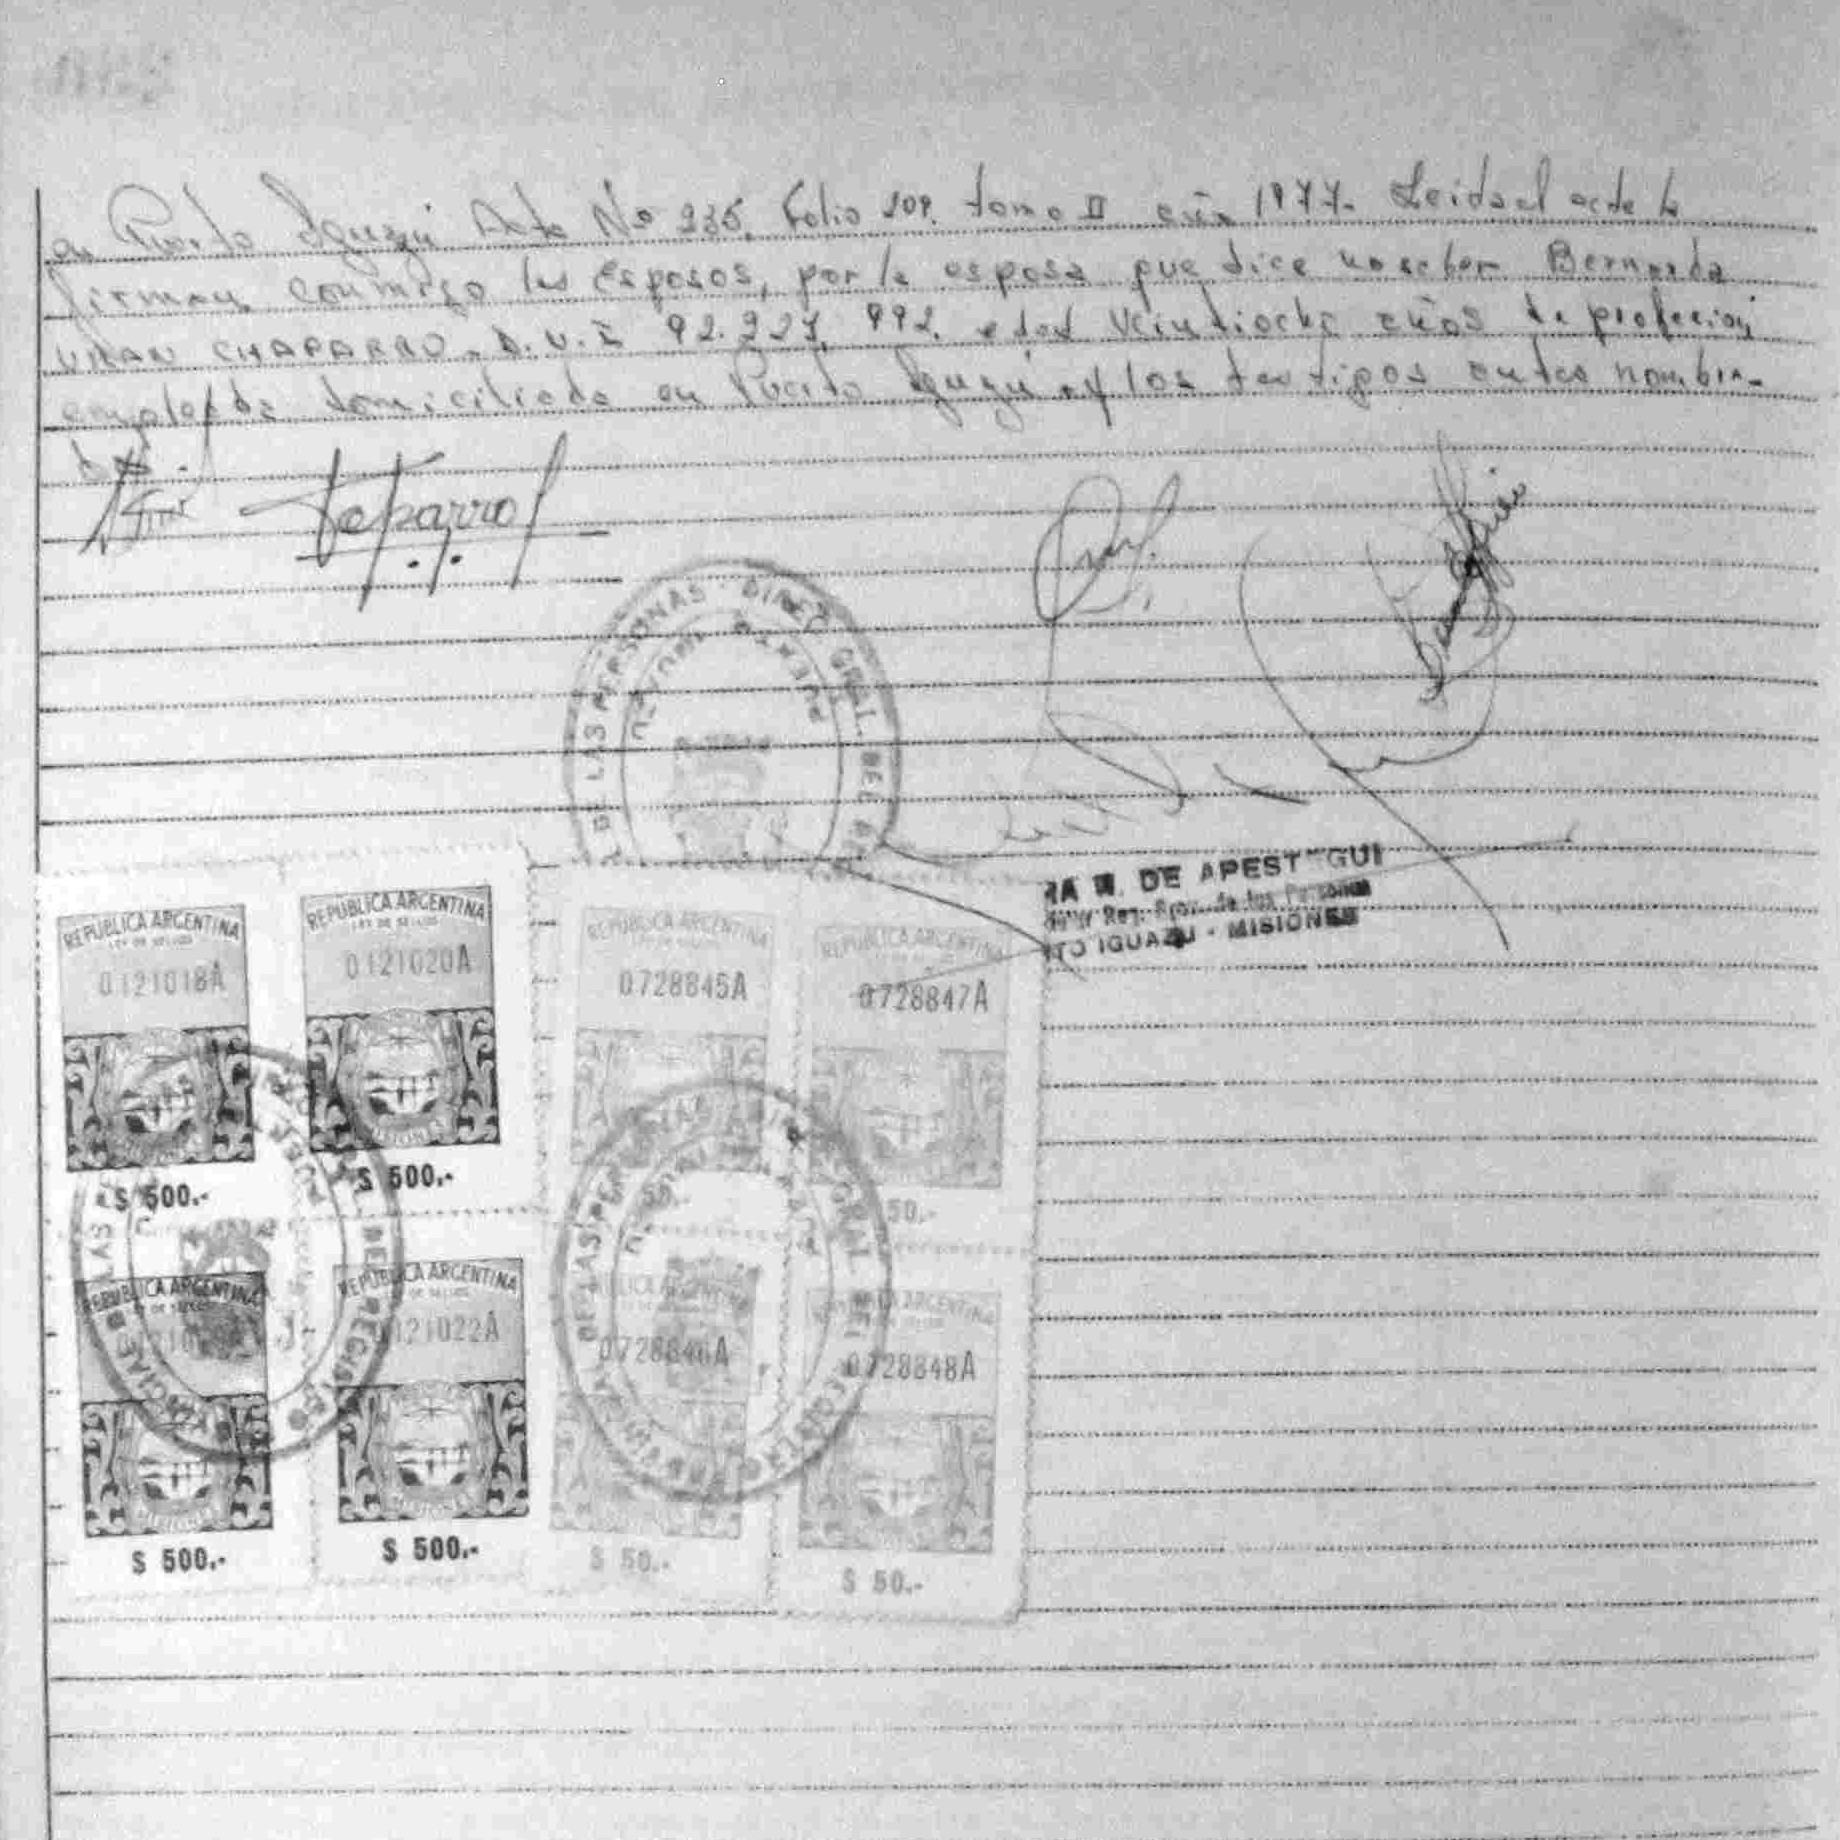 en Puerto Iguazú Acta Nº 235. Folio 109. tomo II año 1977. Leida el acta la
firman conmigo los Esposos, por la esposa que dice no saber Bernarda
CHAPARRO. D.N.I 92.227.992. edad veintiocho años de profesion
empleada domiciliada en Puerto Iguazú y los testigos antes nombra-
dos.
Chaparro
DE LAS PERSONAS - DIREC. GRAL. DEL
PUERTO IGUAZU
RA M. DE APEST GUI
Reg. Prov. de las Personas
TO IGUAZU - MISIONES
REPUBLICA ARGENTINA
LEY DE SELLOS
0121018A
MISIONES
$ 500.-
REPUBLICA ARGENTINA
LEY DE SELLOS
0121020A
MISIONES
$ 500.-
REPUBLICA ARGENTINA
0728845A
50.-
REPUBLICA ARGENTINA
0728847A
50.-
REPUBLICA ARGENTINA
MISIONES
$ 500.-
REPUBLICA ARGENTINA
DE SELLOS
121022A
MISIONES
$ 500.-
REPUBLICA ARGENTINA
0728846A
$ 50.-
REPUBLICA ARGENTINA
0728848A
$ 50.-